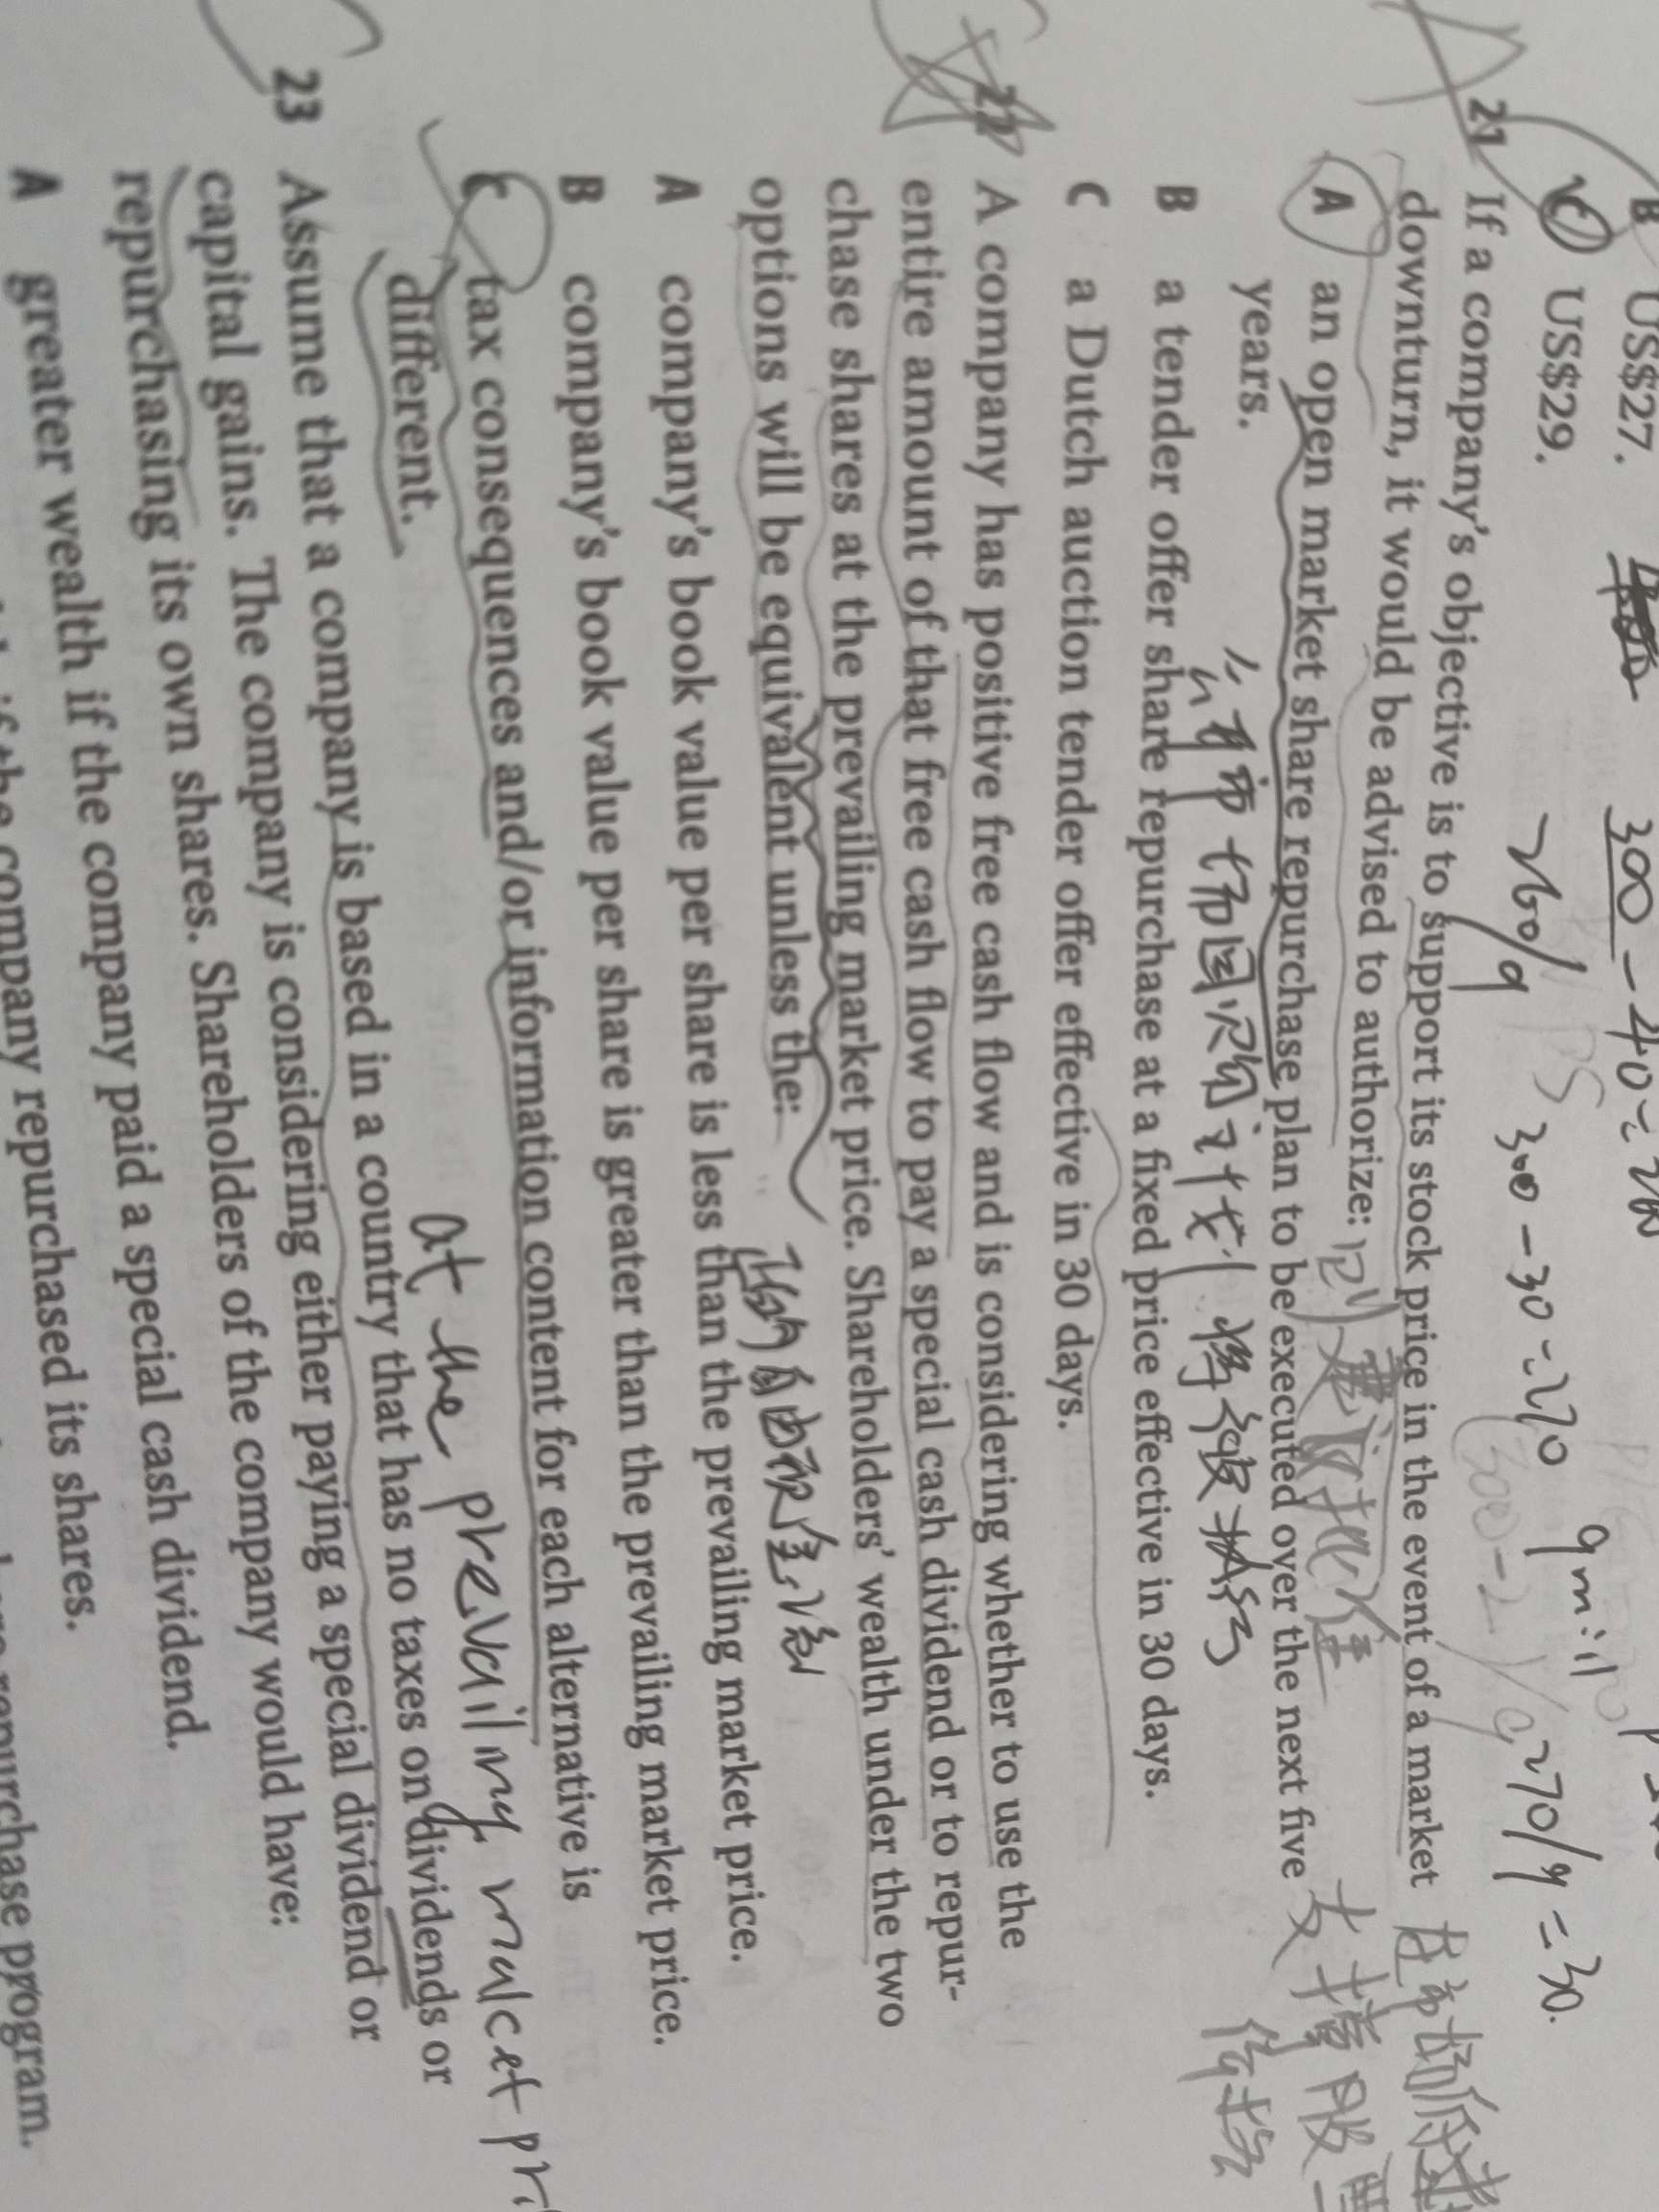 B US$27.
300 - 40 = 260
C US$29.
260/9
300 - 30 = 270
9 mil
270/9 = 30.
21 If a company's objective is to support its stock price in the event of a market
downturn, it would be advised to authorize:
A an open market share repurchase plan to be executed over the next five
years.
公开市场回购计划 将会被执行
支撑股票
B a tender offer share repurchase at a fixed price effective in 30 days.
C a Dutch auction tender offer effective in 30 days.
22 A company has positive free cash flow and is considering whether to use the
entire amount of that free cash flow to pay a special cash dividend or to repur-
chase shares at the prevailing market price. Shareholders' wealth under the two
options will be equivalent unless the:
自由现金流
A company's book value per share is less than the prevailing market price.
B company's book value per share is greater than the prevailing market price.
C tax consequences and/or information content for each alternative is
different.
at the prevailing
23 Assume that a company is based in a country that has no taxes on dividends or
capital gains. The company is considering either paying a special dividend or
repurchasing its own shares. Shareholders of the company would have:
A greater wealth if the company paid a special cash dividend.
if the company repurchased its shares.
repurchase program.